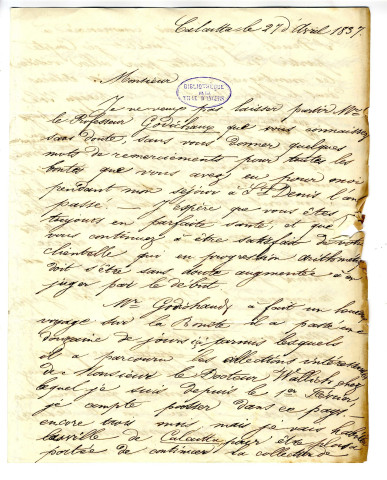 Calcutta le 27 d'Avril 1837.
Monsieur
BIBLIOTHEQUE
DE LA
VILLE D'ANGERS
Je ne veux pas laisser partir Mr.
le Professeur Godichaux que vous connaissez
sans doute, sans vous donner quelques
mots de remerciements pour toutes les
bontés que vous avez eu pour moi
pendant mon séjour à St Denis l'an
passé. — J'espère que vous êtes
toujours en parfaite santé, et que
vous continuez à être satisfait de votre
clientelle qui en progression arithmétique
doit s'être sans doute augmentée à en
juger par le debut.
Mr. Godichaud, a fait un heureux
voyage sur la Bonite il a passé une
douzaine de jours ici parmis lesquels
il a parcouru les collections intéressantes
de Monsieur le Docteur Wallich chez
lequel je suis depuis le 1er Fevrier,
je compte passer dans ce pays
encore trois mois, mais je vais habiter
la ville de Calcutta pour être plus à
portée de continuer la collection de